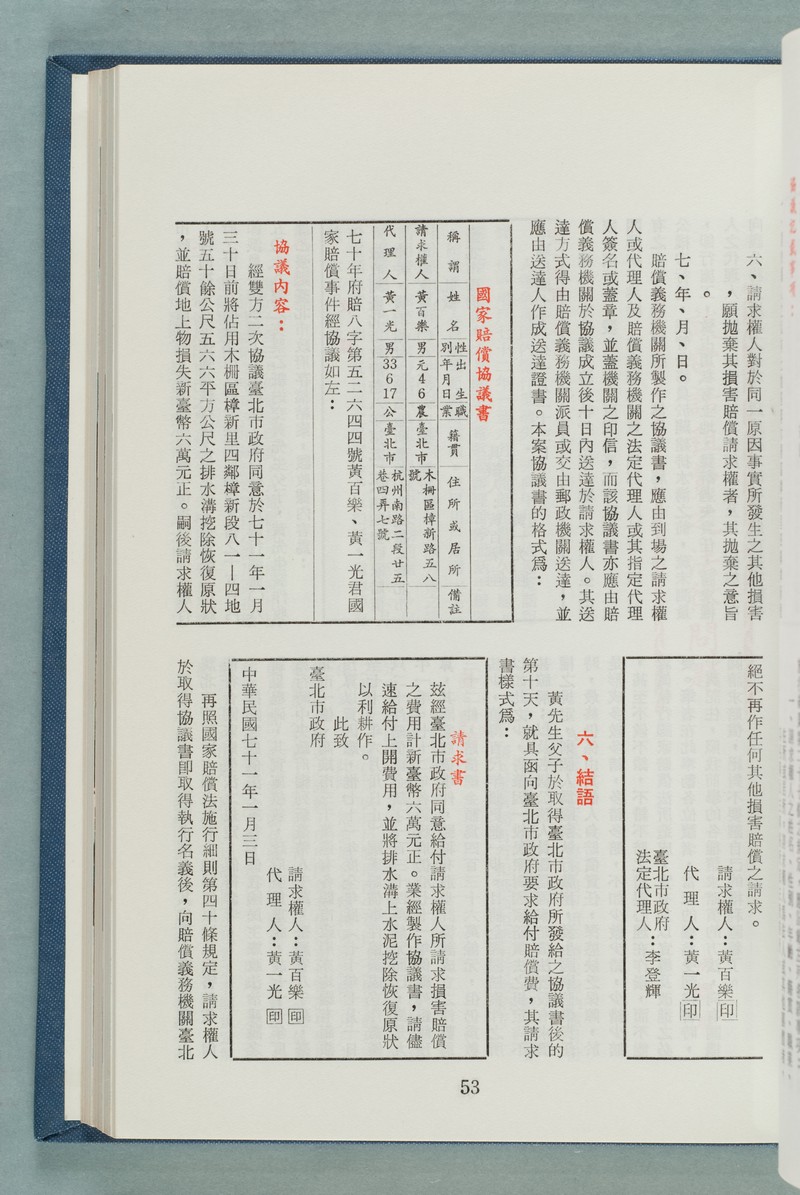 六、請求權人對於同一原因事實所發生之其他損害
，願拋棄其損害賠償請求權者，其拋棄之意旨
。
七、年、月、日。
賠償義務機關所製作之協議書，應由到場之請求權
人或代理人及賠償義務機關之法定代理人或其指定代理
人簽名或蓋章，並蓋機關之印信，而該協議書亦應由賠
償義務機關於協議成立後十日內送達於請求權人。其送
達方式得由賠償義務機關派員或交由郵政機關送達，並
應由送達人作成送達證書。本案協議書的格式為：
國家賠償協議書
稱謂 姓名 性別 出生年月日 職業 籍貫 住所或居所 備註
請求權人 黃百樂 男 元46 農 臺北市 木柵區樟新路五八號
代理人 黃一光 男 33617 公 臺北市 杭州南路二段廿五巷四弄七號
七十年府賠八字第五二六四四號黃百樂、黃一光君國
家賠償事件經協議如左：
協議內容：
經雙方二次協議臺北市政府同意於七十一年一月
三十日前將佔用木柵區樟新里四鄰樟新段八一—四地
號五十餘公尺五六六平方公尺之排水溝挖除恢復原狀
，並賠償地上物損失新臺幣六萬元正。嗣後請求權人
絕不再作任何其他損害賠償之請求。
請求權人：黃百樂 印
代理人：黃一光 印
臺北市政府
法定代理人：李登輝
六、結語
黃先生父子於取得臺北市政府所發給之協議書後的
第十天，就具函向臺北市政府要求給付賠償費，其請求
書樣式為：
請求書
茲經臺北市政府同意給付請求權人所請求損害賠償
之費用計新臺幣六萬元正。業經製作協議書，請儘
速給付上開費用，並將排水溝上水泥挖除恢復原狀
以利耕作。
此致
臺北市政府
請求權人：黃百樂 印
代理人：黃一光 印
中華民國七十一年一月三日
再照國家賠償法施行細則第四十條規定，請求權人
於取得協議書卽取得執行名義後，向賠償義務機關臺北
53